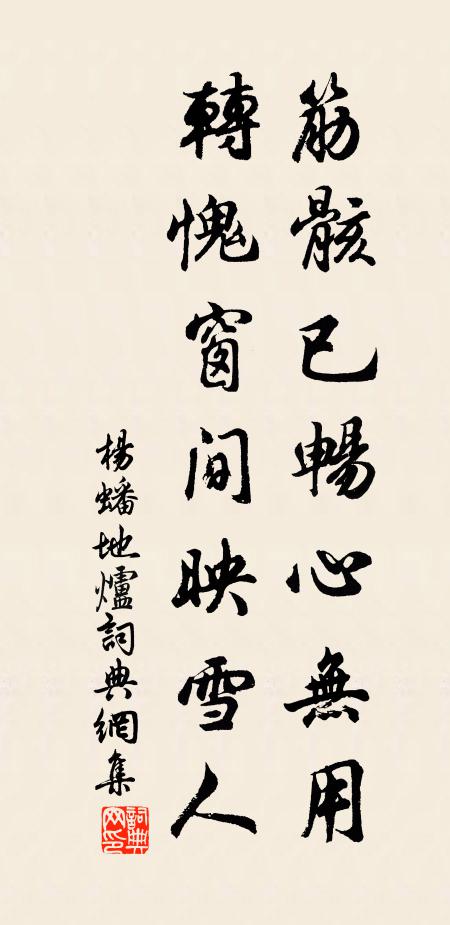 筋骸已暢心無用
轉愧窗間映雪人
楊蟠地爐詞典網集
詞典網印